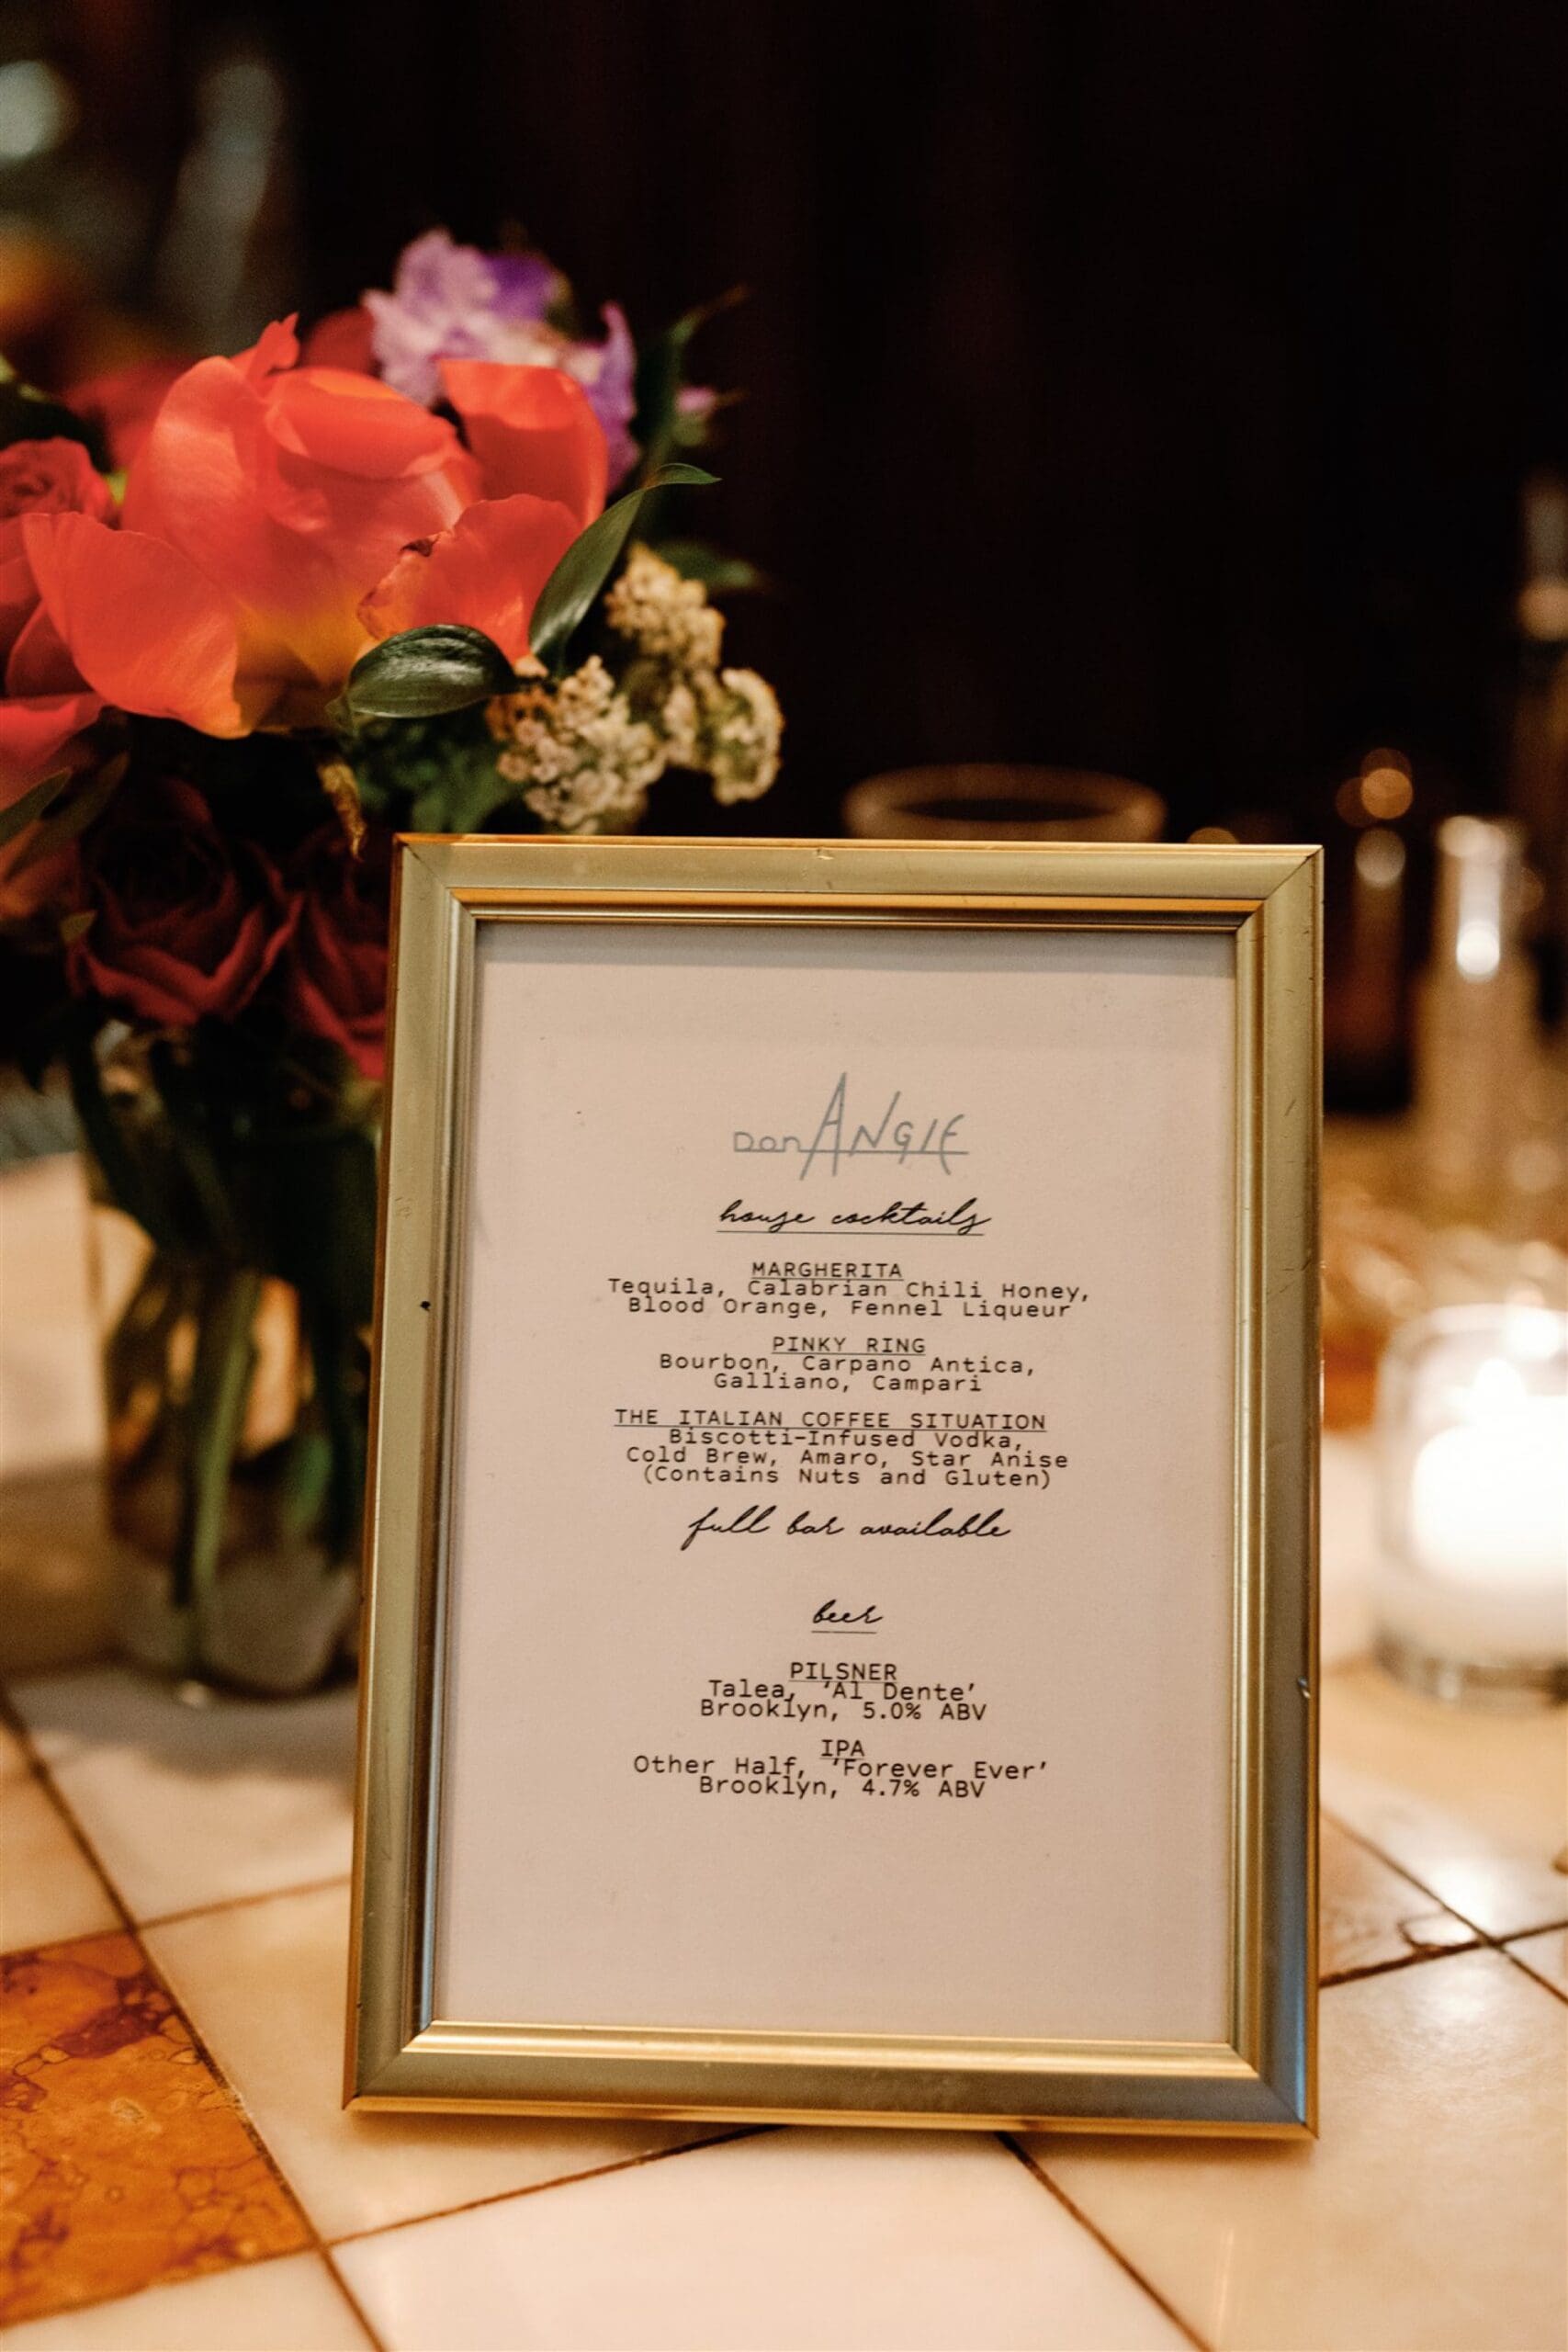 Don ANGIE
house cocktails
MARGHERITA
Tequila, Calabrian Chili Honey,
Blood Orange, Fennel Liqueur
PINKY RING
Bourbon, Carpano Antica,
Galliano, Campari
THE ITALIAN COFFEE SITUATION
Biscotti-Infused Vodka,
Cold Brew, Amaro, Star Anise
(Contains Nuts and Gluten)
full bar available
beer
PILSNER
Talea, 'Al Dente'
Brooklyn, 5.0% ABV
IPA
Other Half, 'Forever Ever'
Brooklyn, 4.7% ABV